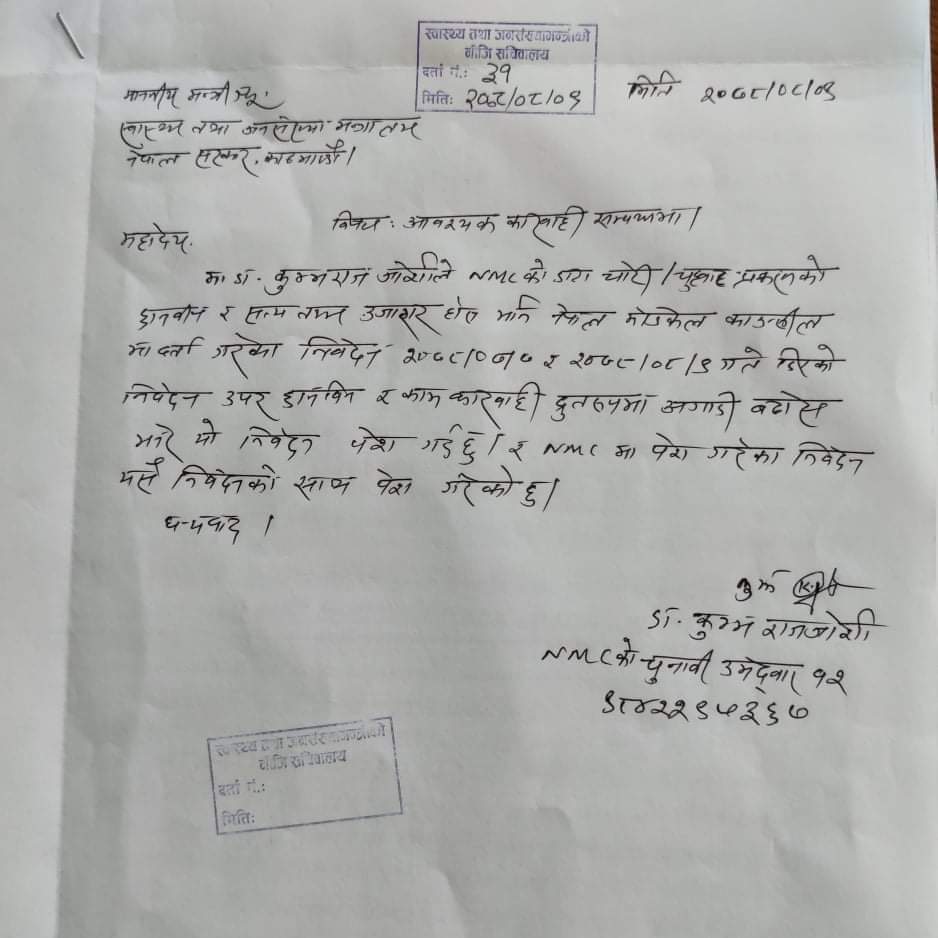 स्वास्थ्य तथा जनसंख्यामन्त्रीको
नीजि सचिवालय
दर्ता नं.: ३१
मिति: २०७८/०८/०९
मिति २०७८/०८/०९
माननीय मन्त्री ज्यू,
स्वास्थ्य तथा जनसंख्या मन्त्रालय
नेपाल सरकार, काठमाडौं।
विषय: आवश्यक कारवाही सम्बन्धमा।
महोदय,
म डा. कुम्भराज जोशीले NMC को डाटा चोरी / चुहावट प्रकरणको
छानवीन र सत्य तथ्य उजागर होस भनि नेपाल मेडिकल काउन्सील
मा दर्ता गरेका निवेदन २०७८/०७/७ र २०७८/०८/९ गते दिएको
निवेदन उपर छानविन र काम कारवाही द्रुतरुपमा अगाडी बढोस
भनि यो निवेदन पेश गर्दछु। र NMC मा पेश गरेका निवेदन
यसै निवेदनको साथ पेश गरेको छु।
धन्यवाद ।
डा. कुम्भ राज जोशी
NMC को चुनावी उमेद्वार १२
९८४२२९५३६७
स्वास्थ्य तथा जनसंख्यामन्त्रीको
नीजि सचिवालय
दर्ता नं.:
मिति: